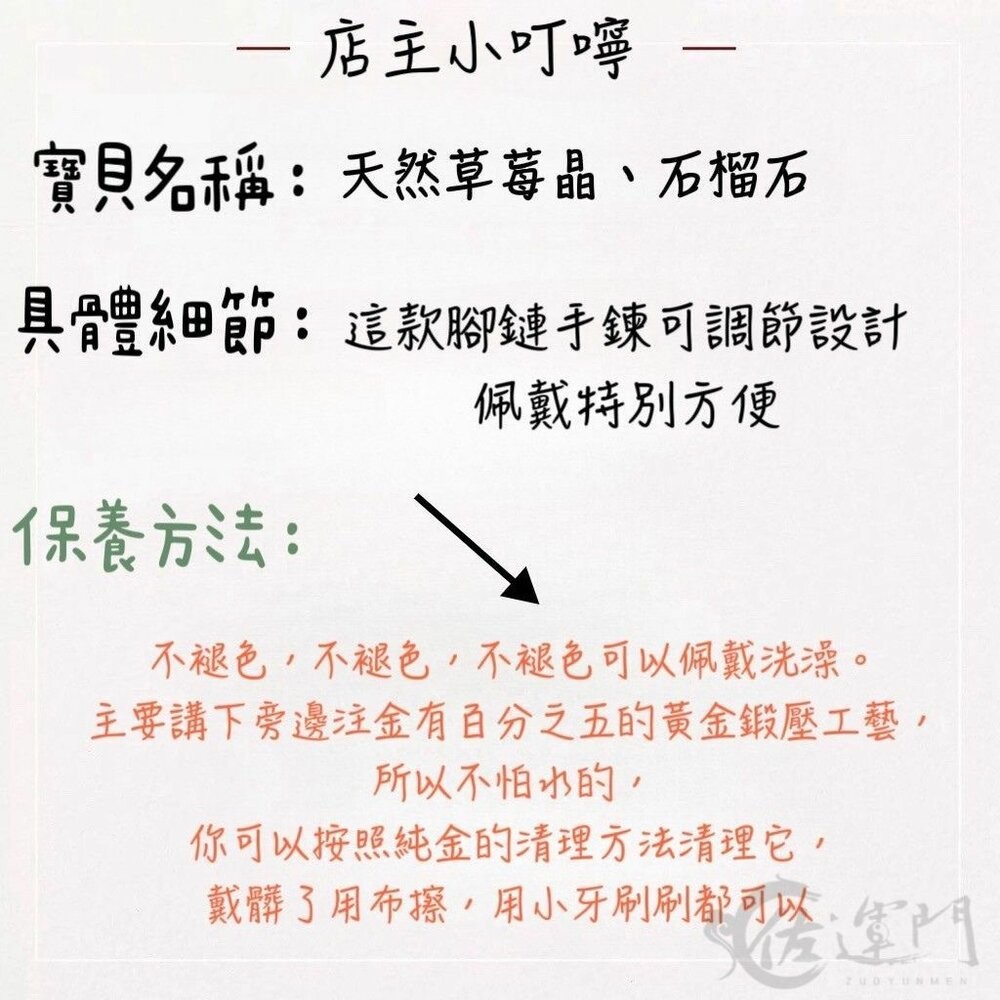 店主小叮嚀
寶貝名稱：天然草莓晶、石榴石
具體細節：這款腳鏈手鍊可調節設計
佩戴特別方便
保養方法：
不褪色，不褪色，不褪色可以佩戴洗澡。
主要講下旁邊注金有百分之五的黃金鍛壓工藝，
所以不怕水的，
你可以按照純金的清理方法清理它，
戴髒了用布擦，用小牙刷刷都可以
佐運門
ZUOYUNMEN